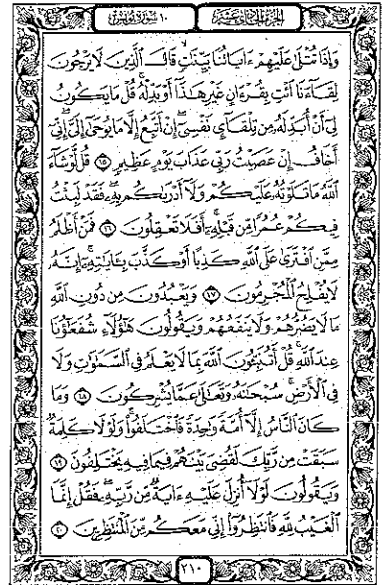 ١٠ سورة يونس
الجزء الحادي عشر
وَإِذَا تُتْلَىٰ عَلَيْهِمْ ءَايَاتُنَا بَيِّنَٰتٍ قَالَ ٱلَّذِينَ لَا يَرْجُونَ
لِقَآءَنَا ٱئْتِ بِقُرْءَانٍ غَيْرِ هَٰذَآ أَوْ بَدِّلْهُ ۚ قُلْ مَا يَكُونُ
لِىٓ أَنْ أُبَدِّلَهُۥ مِن تِلْقَآئِ نَفْسِىٓ ۖ إِنْ أَتَّبِعُ إِلَّا مَا يُوحَىٰٓ إِلَىَّ ۖ إِنِّىٓ
أَخَافُ إِنْ عَصَيْتُ رَبِّى عَذَابَ يَوْمٍ عَظِيمٍ ١٥ قُل لَّوْ شَآءَ
ٱللَّهُ مَا تَلَوْتُهُۥ عَلَيْكُمْ وَلَآ أَدْرَىٰكُم بِهِۦ ۖ فَقَدْ لَبِثْتُ
فِيكُمْ عُمُرًا مِّن قَبْلِهِۦٓ ۚ أَفَلَا تَعْقِلُونَ ١٦ فَمَنْ أَظْلَمُ
مِمَّنِ ٱفْتَرَىٰ عَلَى ٱللَّهِ كَذِبًا أَوْ كَذَّبَ بِـَٔايَٰتِهِۦٓ ۚ إِنَّهُۥ
لَا يُفْلِحُ ٱلْمُجْرِمُونَ ١٧ وَيَعْبُدُونَ مِن دُونِ ٱللَّهِ
مَا لَا يَضُرُّهُمْ وَلَا يَنفَعُهُمْ وَيَقُولُونَ هَٰٓؤُلَآءِ شُفَعَٰٓؤُنَا
عِندَ ٱللَّهِ ۚ قُلْ أَتُنَبِّـُٔونَ ٱللَّهَ بِمَا لَا يَعْلَمُ فِى ٱلسَّمَٰوَٰتِ وَلَا
فِى ٱلْأَرْضِ ۚ سُبْحَٰنَهُۥ وَتَعَٰلَىٰ عَمَّا يُشْرِكُونَ ١٨ وَمَا
كَانَ ٱلنَّاسُ إِلَّآ أُمَّةً وَٰحِدَةً فَٱخْتَلَفُوا۟ ۚ وَلَوْلَا كَلِمَةٌ
سَبَقَتْ مِن رَّبِّكَ لَقُضِىَ بَيْنَهُمْ فِيمَا فِيهِ يَخْتَلِفُونَ ١٩
وَيَقُولُونَ لَوْلَآ أُنزِلَ عَلَيْهِ ءَايَةٌ مِّن رَّبِّهِۦ ۖ فَقُلْ إِنَّمَا
ٱلْغَيْبُ لِلَّهِ فَٱنتَظِرُوٓا۟ إِنِّى مَعَكُم مِّنَ ٱلْمُنتَظِرِينَ ٢٠
٢١٠